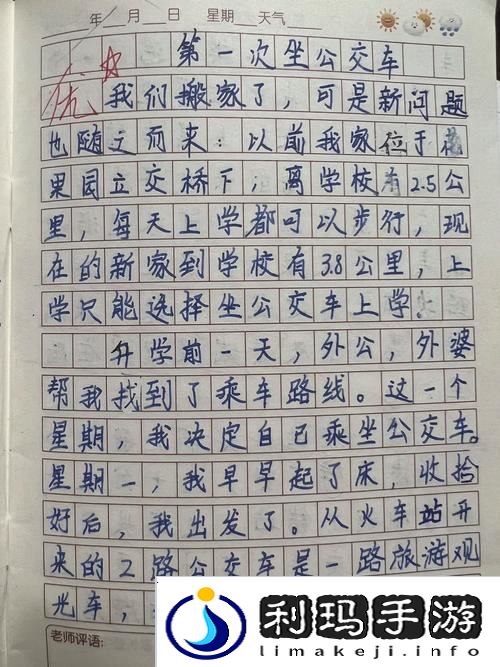 年 月 日 星期 天气
第一次坐公交车
优
我们搬家了，可是新问题
也随之而来：以前我家位于花
果园立交桥下，离学校有2.5公
里，每天上学都可以步行，现
在的新家到学校有3.8公里，上
学只能选择坐公交车上学。
升学前一天，外公，外婆
帮我找到了乘车路线。这一个
星期，我决定自己乘坐公交车。
星期一，我早早起了床，收拾
好后，我出发了。从火车站开
来的2路公交车是一路旅游观
光车，
老师评语：
利玛手游
limakeji.info